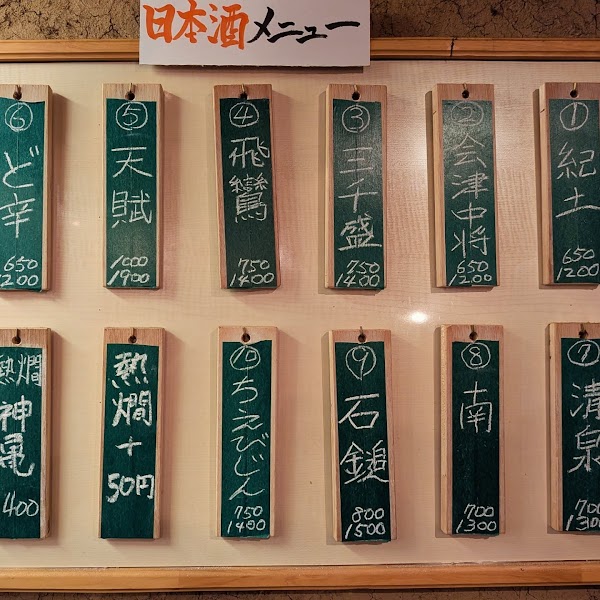 日本酒メニュー
① 紀土
650
1200
② 会津中将
650
1200
③ 三千盛
750
1400
④ 飛鸞
750
1400
⑤ 天賦
1000
1900
⑥ ど辛
650
1200
⑦ 清泉
700
1300
⑧ 南
700
1300
⑨ 石鎚
800
1500
⑩ ちえびじん
750
1400
熱燗+50円
熱燗
神亀
400